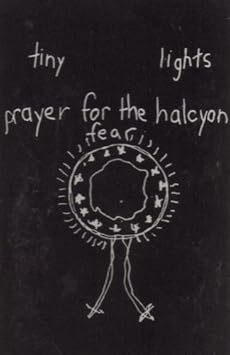 tiny lights
prayer for the halcyon
fear